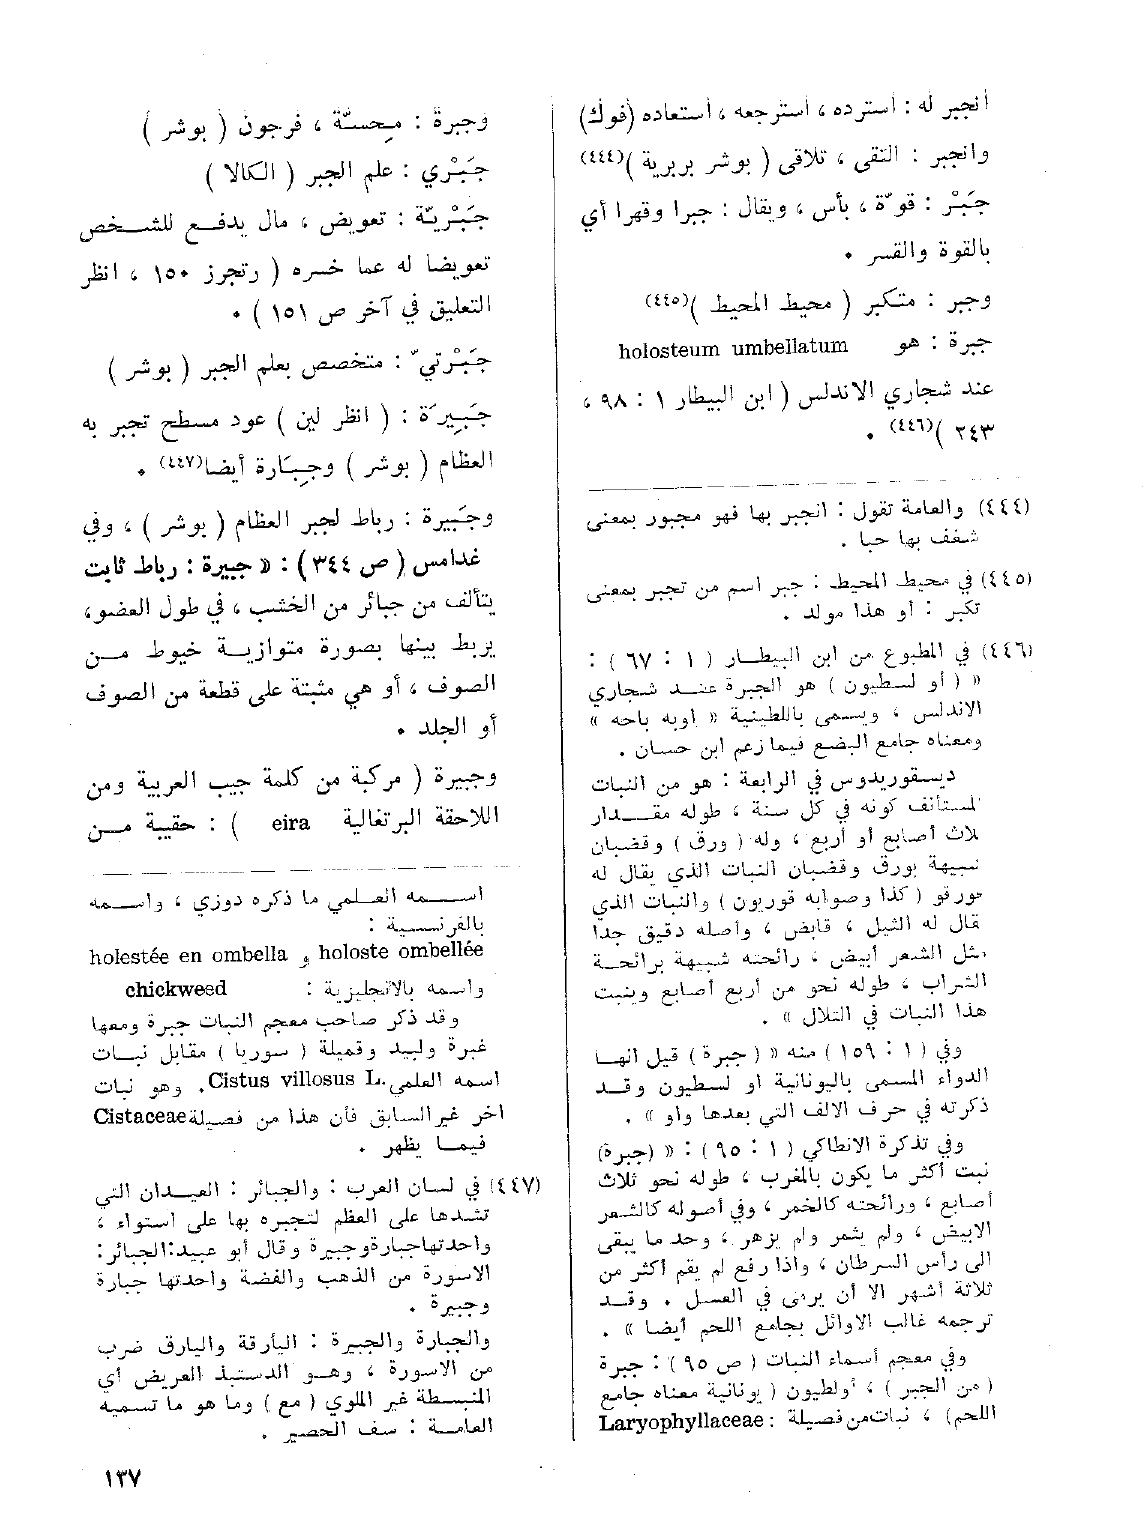 أنجبر له : أسترده ، أسترجعه ، أستعاده (فوك)
وانجبر : التقى ، تلاقى ( بوشر بربرية )(٤٤٤)
جَبْر : قوّة ، بأس ، ويقال : جبرا وقهرا أي
بالقوة والقسر ٠
وجبر : متكبر ( محيط المحيط )(٤٤٥)
جبرة : هو holosteum umbellatum
عند شجاري الاندلس ( ابن البيطار ١ : ٩٨ ،
٢٤٣ )(٤٤٦) ٠
(٤٤٤) والعامة تقول : انجبر بها فهو مجبور بمعنى
شغف بها حبا .
(٤٤٥) في محيط المحيط : جبر اسم من تجبر بمعنى
تكبر : أو هذا مولد .
(٤٤٦) في المطبوع من ابن البيطار ( ١ : ٦٧ ) :
« ( أو لسطيون ) هو الجبرة عند شجاري
الاندلس ، ويسمى باللطينية « اوبه باجه »
ومعناه جامع البضع فيما زعم ابن حسان .
ديسقوريدوس في الرابعة : هو من النبات
لمستأنف كونه في كل سنة ، طوله مقدار
لاث أصابع أو أربع ، وله ( ورق ) وقضبان
شبيهة بورق وقضبان النبات الذي يقال له
قورقو ( كذا وصوابه قوريون ) والنبات الذي
قال له الثيل ، قابض ، وأصله دقيق جدا
مثل الشعر أبيض ، رائحته شبيهة برائحة
الشراب ، طوله نحو من أربع أصابع وينبت
هذا النبات في التلال » .
وفي ( ١ : ١٥٩ ) منه « ( جبرة ) قيل انها
الدواء المسمى باليونانية او لسطيون وقد
ذكرته في حرف الالف التي بعدها واو » .
وفي تذكرة الانطاكي ( ١ : ٩٥ ) : « (جبرة)
نبت أكثر ما يكون بالمغرب ، طوله نحو ثلاث
أصابع ، ورائحته كالخمر ، وفي أصوله كالشعر
الابيض ، ولم يثمر ولم يزهر ، وحد ما يبقى
الى رأس السرطان ، واذا رفع لم يقم أكثر من
ثلاثة أشهر الا أن يربى في العسل . وقد
ترجمه غالب الاوائل بجامع اللحم أيضا » .
وفي معجم أسماء النبات ( ص ٩٥ ) : جبرة
( من الجبر ) ، أولطيون ( يونانية معناه جامع
اللحم) ، نبات من فصيلة Laryophyllaceae :
وجبرة : مِحسَّة ، فرجون ( بوشر )
جَبْري : علم الجبر ( الكالا )
جَبْرِيّة : تعويض ، مال يدفع للشخص
تعويضا له عما خسره ( رتجرز ١٥٠ ، انظر
التعليق في آخر ص ١٥١ ) ٠
جَبْرتيّ : متخصص بعلم الجبر ( بوشر )
جَبِيرَة : ( انظر لين ) عود مسطح تجبر به
العظام ( بوشر ) وجِبَارة أيضا(٤٤٧) ٠
وجَبيرة : رباط لجبر العظام ( بوشر ) ، وفي
غدامس ( ص ٣٤٤ ) : « جبيرة : رباط ثابت
يتألف من جبائر من الخشب ، في طول العضو،
يربط بينها بصورة متوازية خيوط من
الصوف ، أو هي مثبتة على قطعة من الصوف
أو الجلد ٠
وجبيرة ( مركبة من كلمة جيب العربية ومن
اللاحقة البرتغالية eira ) : حقيبة من
اسمه العلمي ما ذكره دوزي ، واسمه
بالفرنسية :
holestée en ombella و holoste ombellée
واسمه بالانجليزية : chickweed
وقد ذكر صاحب معجم النبات جبرة ومعها
غبرة ولبيد وقميلة ( سوريا ) مقابل نبات
اسمه العلمي .Cistus villosus L. وهو نبات
اخر غير السابق فأن هذا من فصيلة Cistaceae
فيما يظهر .
(٤٤٧) في لسان العرب : والجبائر : العيدان التي
تشدها على العظم لتجبره بها على استواء ،
واحدتها جبارة وجبيرة وقال أبو عبيد: الجبائر :
الاسورة من الذهب والفضة واحدتها جبارة
وجبيرة .
والجبارة والجبيرة : اليأرقة واليارق ضرب
من الاسورة ، وهو الدستبند العريض أي
المنبسطة غير الملوي ( مع ) وما هو ما تسميه
العامة : سف الحصير .
١٣٧